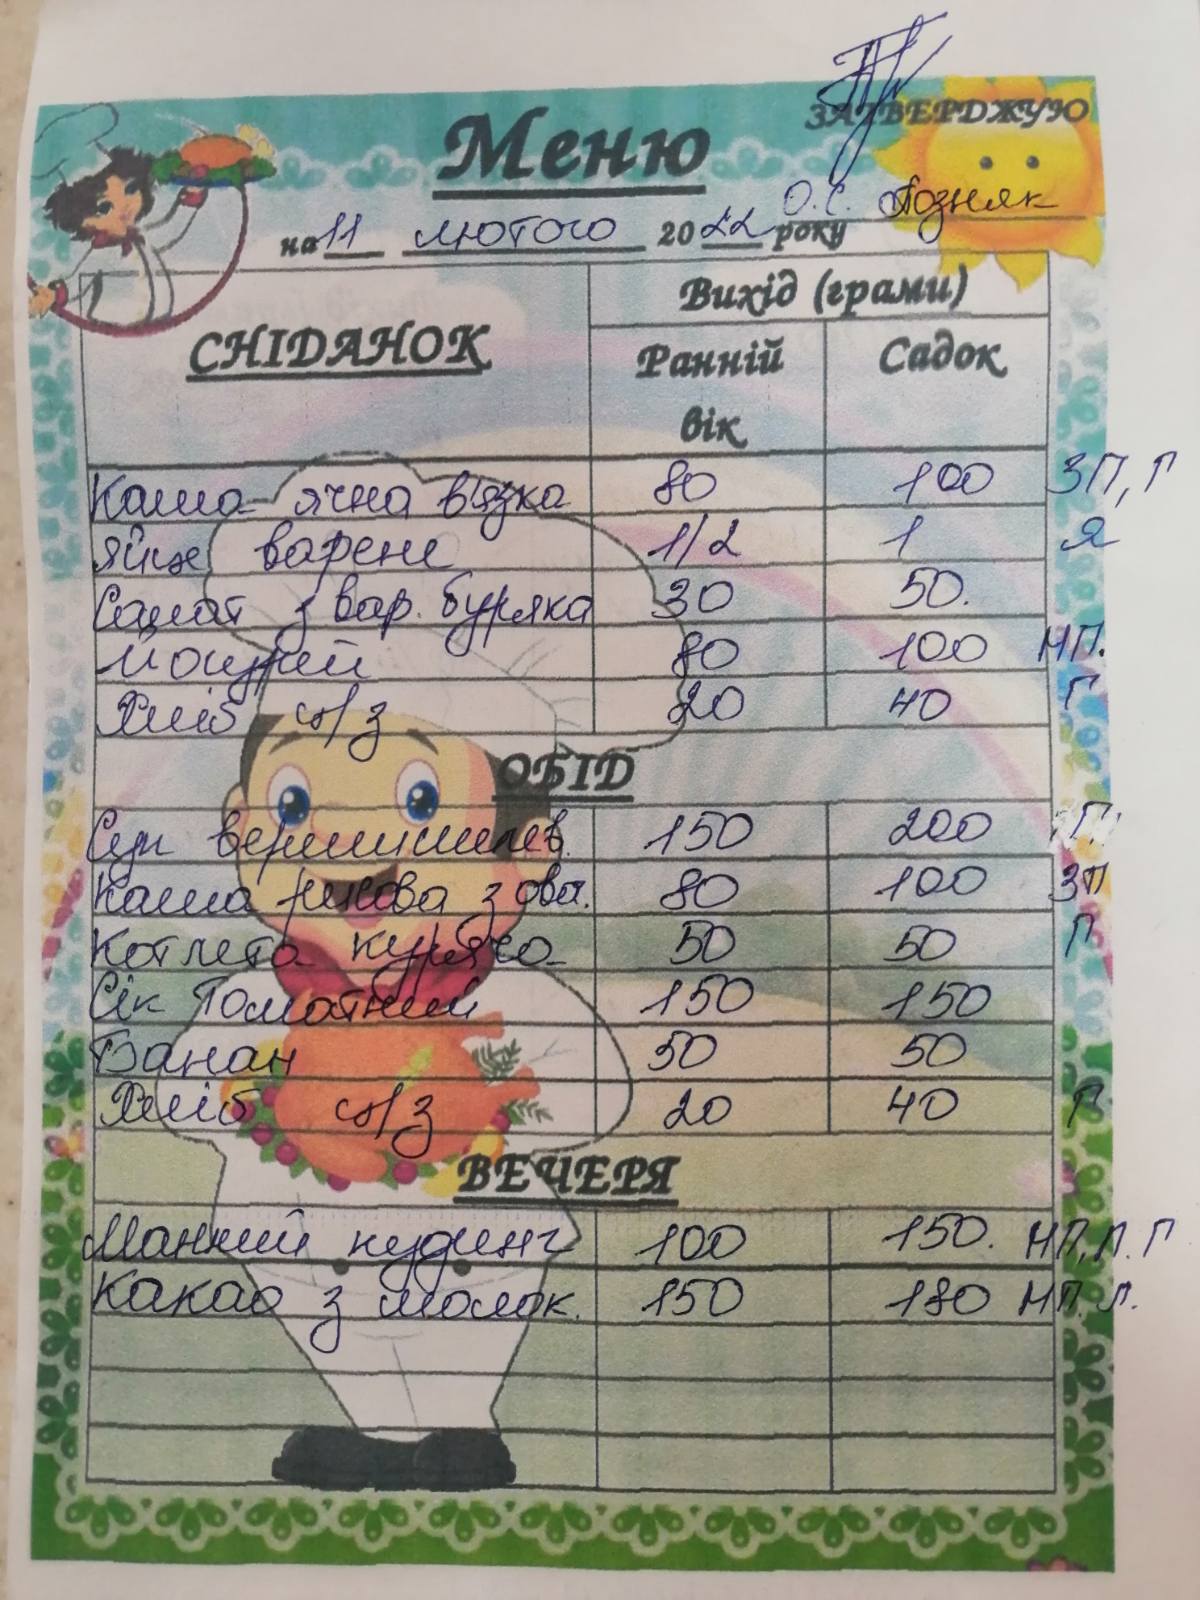 ЗАТВЕРДЖУЮ
Меню
О.С. Позняк
на 11 лютого 2022 року
СНІДАНОК
Вихід (грами)
Ранній вік
Садок
Каша ячна в'язка 80 100 ЗП, Г
Яйце варене 1/2 1 Я
Салат з вар. буряка 30 50.
80 100 МП.
Хліб ж/з 20 40 Г
ОБІД
Суп вермишелев. 150 200 Г
Каша рисова з овоч. 80 100 ЗП
Котлета куряча 50 50 Г
Сік Томатний 150 150
Банан 50 50
Хліб ж/з 20 40 Г
ВЕЧЕРЯ
Манний пудинг 100 150. МП, Л. Г
Какао з молок. 150 180 МП. Л.